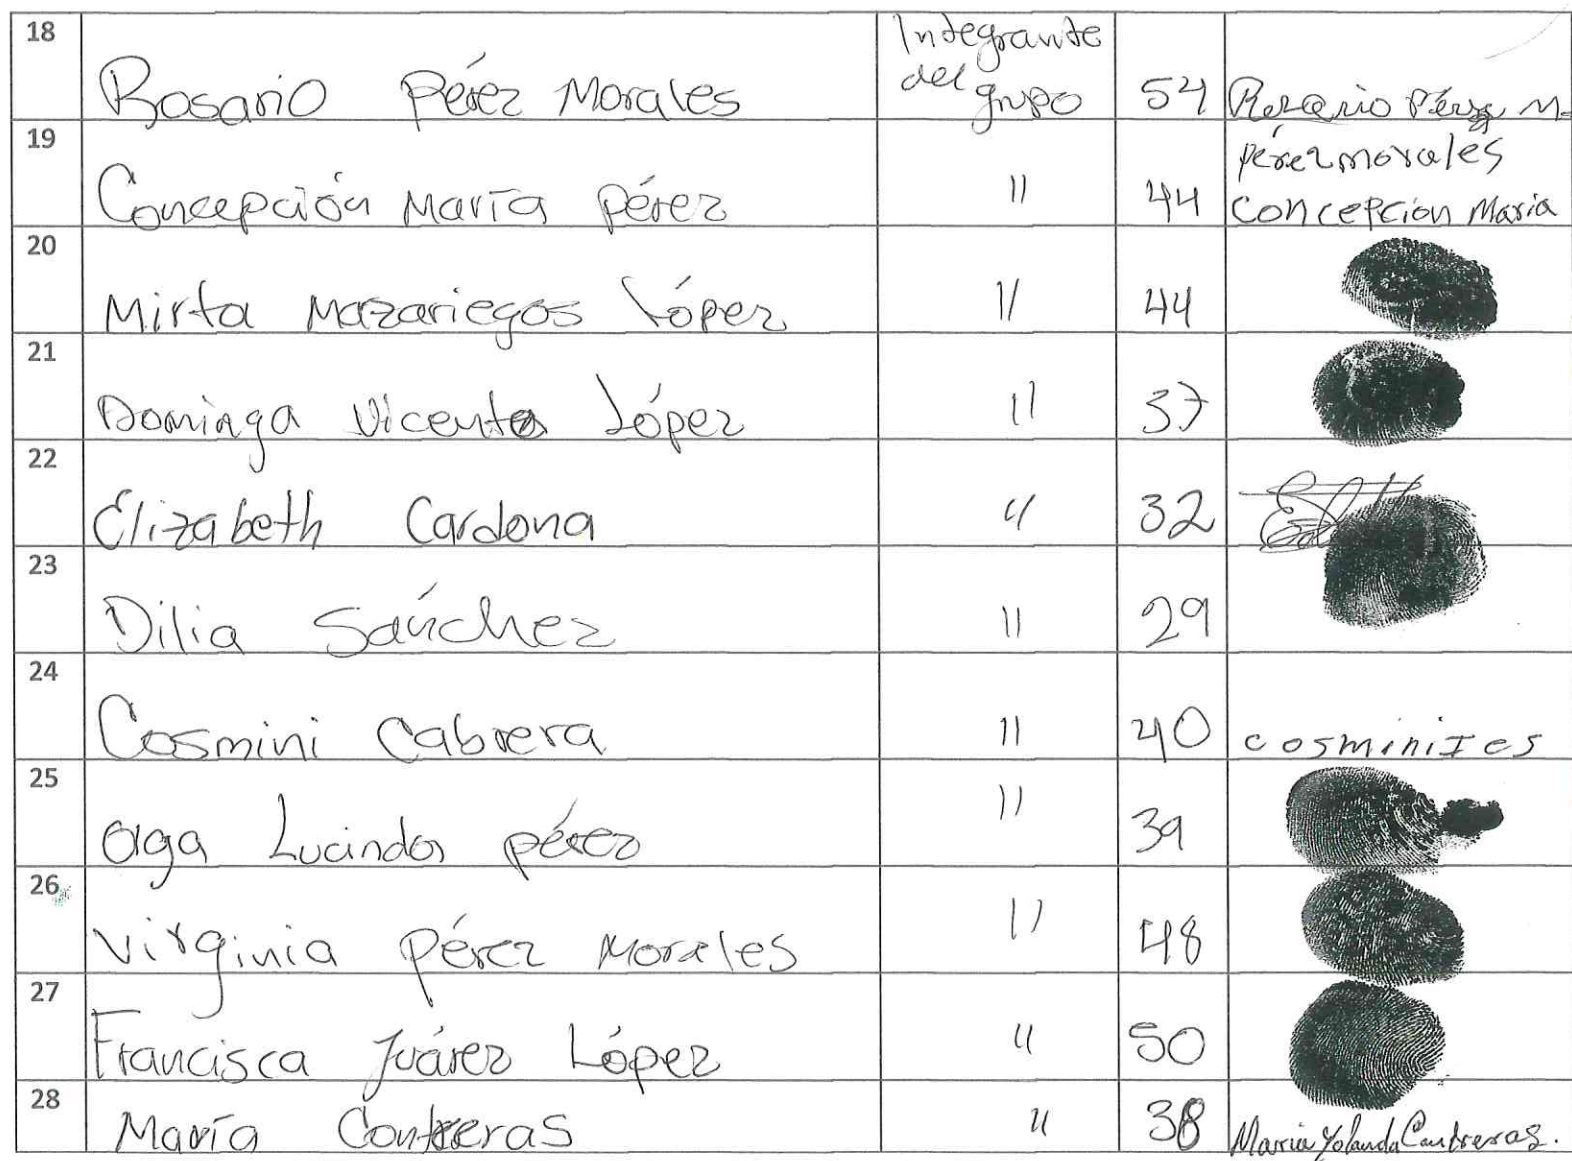 18 Rosario Pérez Morales Integrante del grupo 54 Rosario Pérez M.
19 Concepción María Pérez 11 44 pérez morales concepcion Maria
20 Mirta Mazariegos López 11 44
21 Dominga Vicente López 11 37
22 Elizabeth Cardona 11 32
23 Dilia Sánchez 11 29
24 Cosmini Cabrera 11 40 cosminiIes
25 Olga Lucinda pérez 11 39
26 Virginia Pérez Morales 11 48
27 Francisca Juárez López 11 50
28 María Contreras 11 38 Marria Yolanda Contreras.